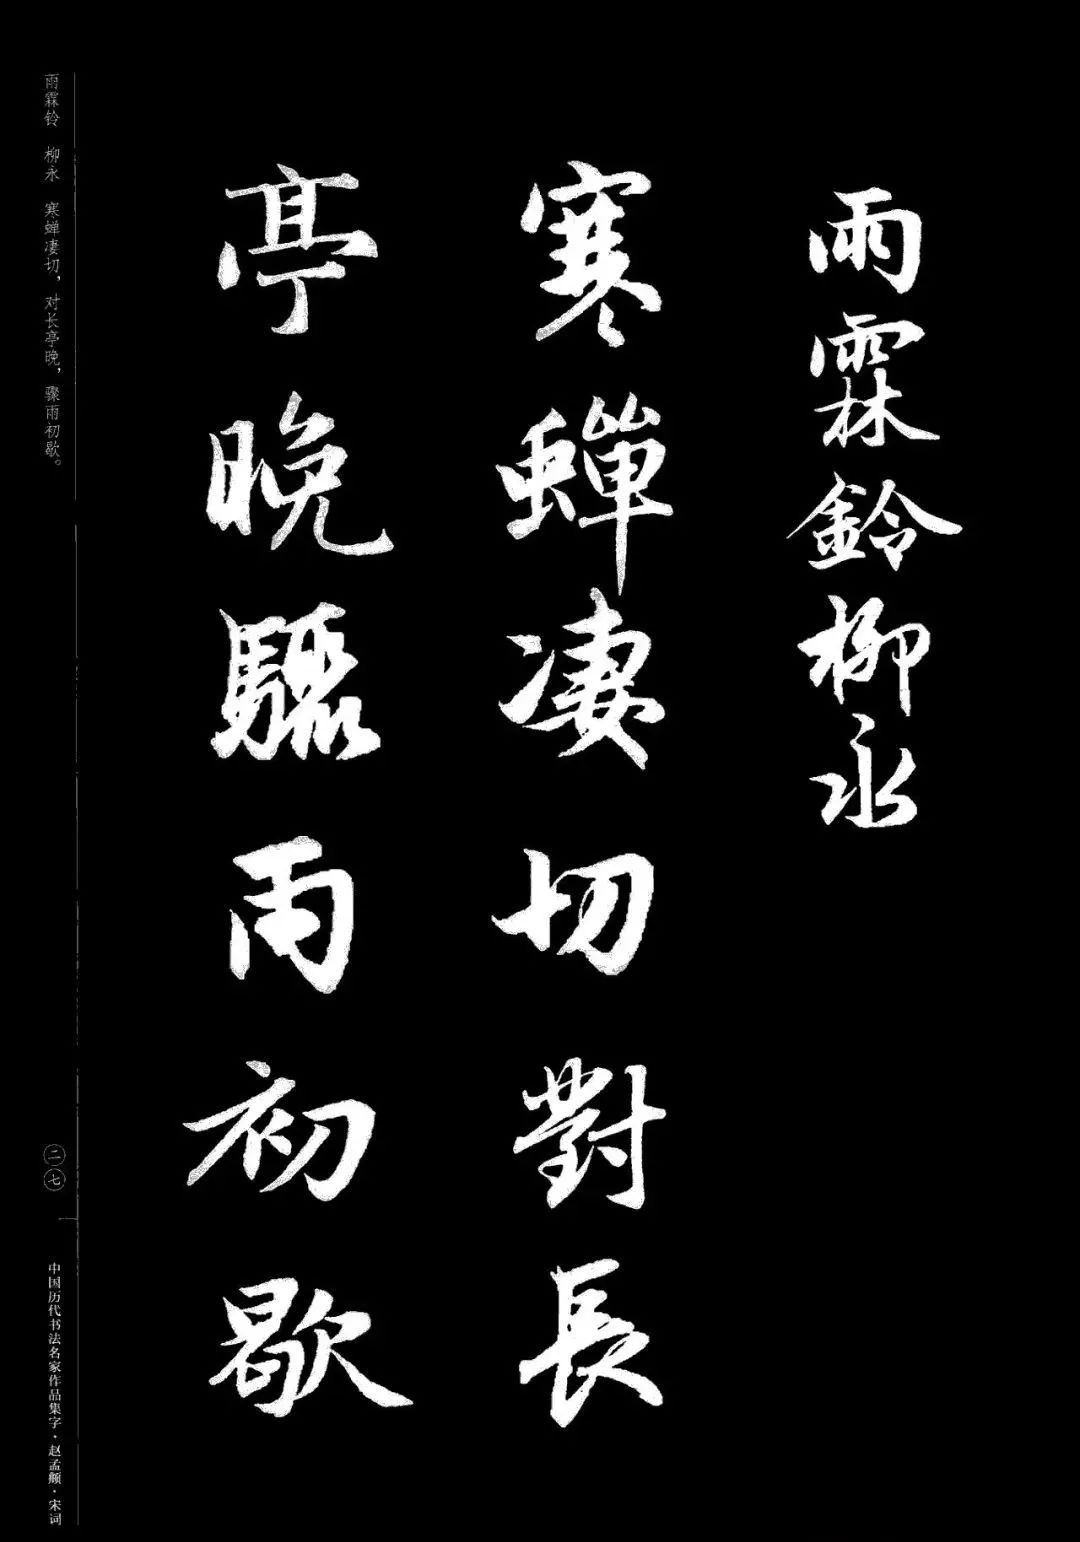 雨霖鈴柳永
寒蟬凄切對長
亭晚驟雨初歇
雨霖铃　柳永　寒蝉凄切，对长亭晚，骤雨初歇。
二七
中国历代书法名家作品集字·赵孟頫·宋词